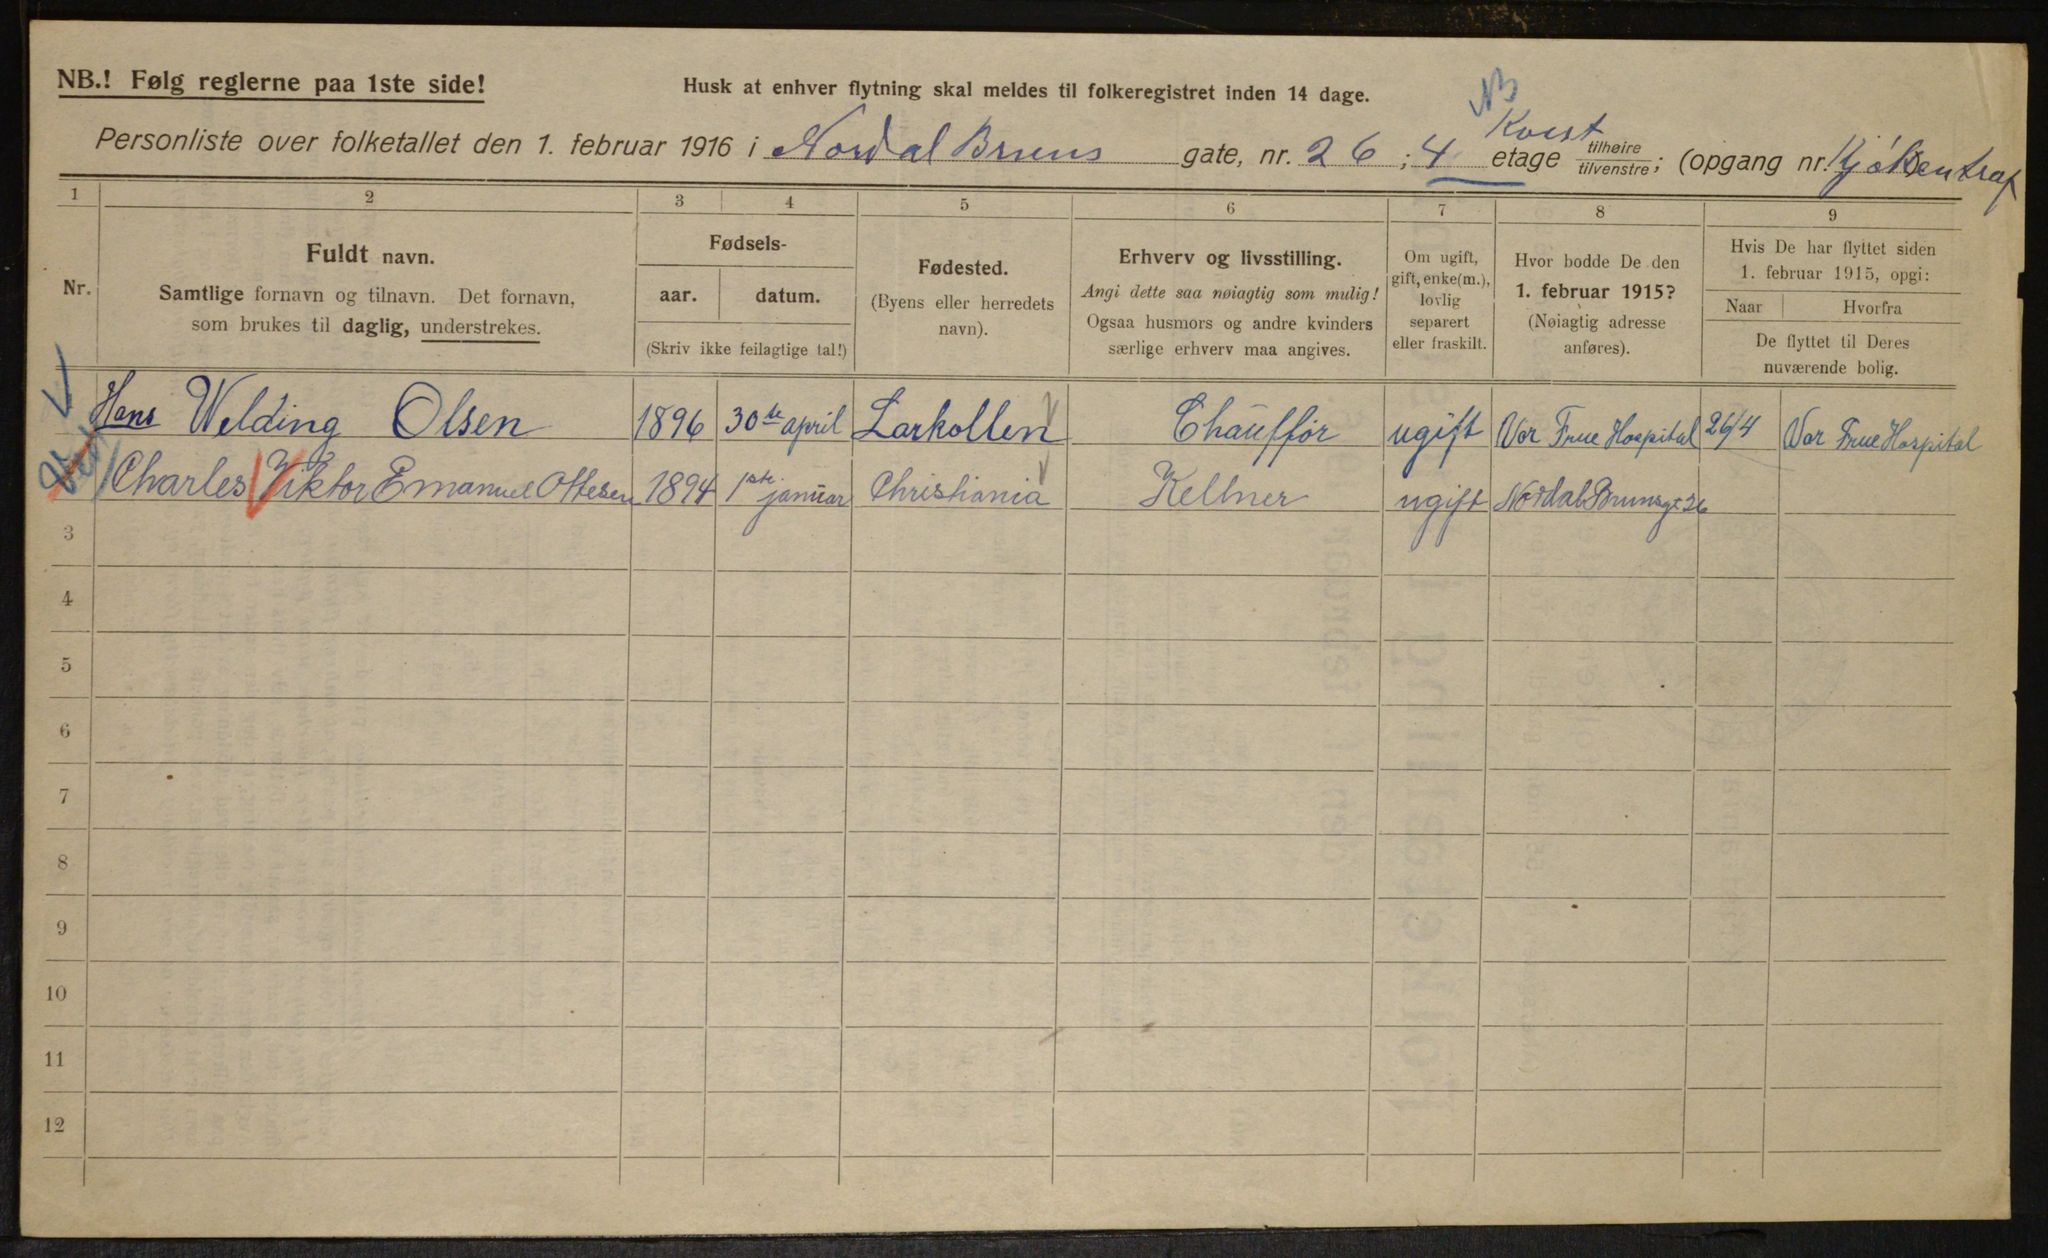 NB.! Følg reglerne paa 1ste side!
Husk at enhver flytning skal meldes til folkeregistret inden 14 dage.
NB
Kvist
Personliste over folketallet den 1. februar 1916 i Nordal Bruns gate, nr. 26; 4 etage tilhøire tilvenstre; (opgang nr. Kjøkkentrap
1 2 3 4 5 6 7 8 9
Nr.
Fuldt navn.
Samtlige fornavn og tilnavn. Det fornavn,
som brukes til daglig, understrekes.
Fødsels-
aar. datum.
(Skriv ikke feilagtige tal!)
Fødested.
(Byens eller herredets
navn).
Erhverv og livsstilling.
Angi dette saa nøiagtig som mulig!
Ogsaa husmors og andre kvinders
særlige erhverv maa angives.
Om ugift,
gift, enke(m.),
lovlig
separert
eller fraskilt.
Hvor bodde De den
1. februar 1915?
(Nøiagtig adresse
anføres).
Hvis De har flyttet siden
1. februar 1915, opgi:
Naar Hvorfra
De flyttet til Deres
nuværende bolig.
Hans Welding Olsen 1896 30te april Larkollen Chauffør ugift Vor Frue Hospital 26/4 Vor Frue Hospital
Charles Viktor Emanuel Ottesen 1894 1ste januar Christiania Kellner ugift Nordal Brunsgt 26
3
4
5
6
7
8
9
10
11
12